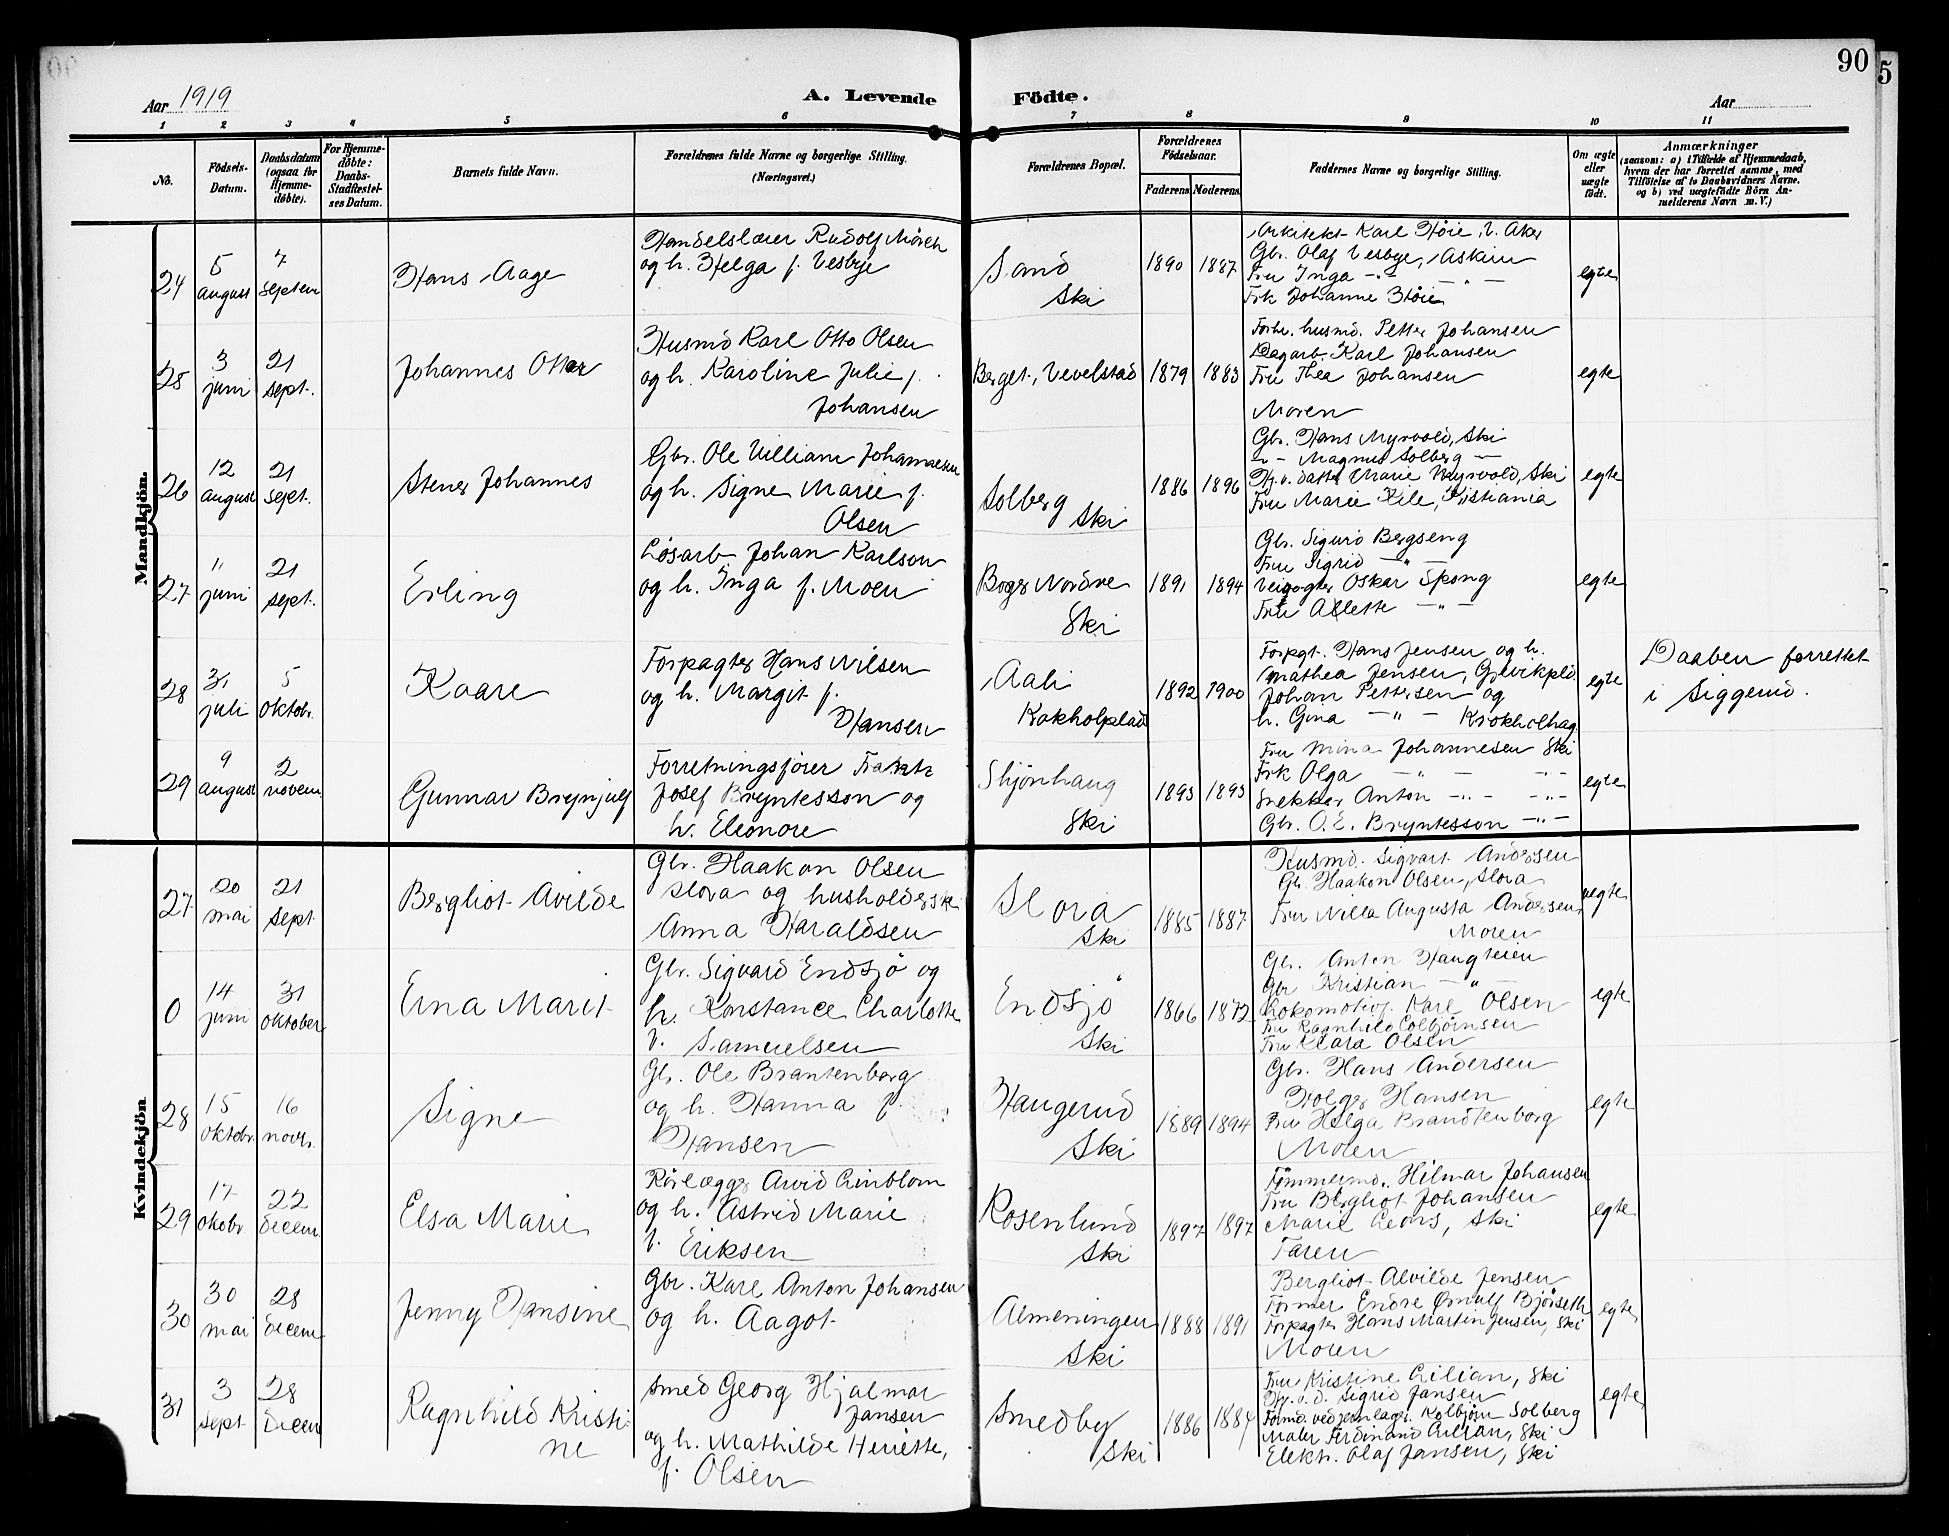 90
5
Aar 1919
A. Levende Födte.
Aar
1 2 3 4 5 6 7 8 9 10 11
No.
Födsels-
Datum.
Daabsdatum
(ogsaa for
Hjemme-
døbte).
For Hjemme-
døbte:
Daabs-
Stadfæstel-
ses Datum.
Barnets fulde Navn.
Forældrenes fulde Navne og borgerlige Stilling.
(Næringsvei.)
Forældrenes Bopæl.
Forældrenes
Födselsaar.
Faderens.
Moderens.
Faddernes Navne og borgerlige Stilling.
Om ægte
eller
uægte
født.
Anmærkninger
(saasom: a) i Tilfælde af Hjemmedaab,
hvem der har forrettet samme, med
Tilföielse af to Daabsvidners Navne.
og b) ved uægtefödte Börn An-
melderens Navn m.V.)
Mandkjön.
24
5
august
7
septem
Hans Aage
Handelslærer Rudolf Mörch
og h. Helga f. Vesbye
Sand
Ski
1890
1887
Arkitekt Karl Høie, V. Aker
Gbr. Olaf Vesbye, Askim
Fru Inga -"- - " -
Frk Johanne Høie
egte
25
3
juni
21
sept.
Johannes Otter
Husmd Karl Otto Olsen
og h. Karoline Julie f.
Johansen
Berget, Vevelstad
1879
1883
Forhv. husmd. Petter Johansen
Dagarb. Karl Johansen
Fru Thea Johansen
Moren
egte
26
12
august
21
sept.
Stener Johannes
Gbr. Ole Villiam Johannesen
og h. Signe Marie f.
Olsen
Solberg
Ski
1886
1896
Gbr. Hans Myrvold, Ski
-"- Magnus Solberg -"-
Hj.v. datter Marie Myrvold, Ski
Fru Marie Kile, Kristiania
egte
27
11
juni
21
sept.
Erling
Løsarb. Johan Karlson
og h. Inga f. Moen
Boger Nordre
Ski
1891
1894
Gbr. Sigurd Bergseng
Fru Sigrid -"-
Veivogter Oskar Spong
Fru Allette -"-
egte
28
31
juli
5
oktobr.
Kaare
Forpagter Hans Nilsen
og h. Margit f.
Hansen
Aali
Kakholplad
1892
1900
Forpgt. Hans Jensen og h.
Mathea Jensen, Gjevikpld
Johan Pettersen og
h. Gina -"- Krokholhag
egte
Daaben forrettet
i Siggerud.
29
9
august
2
novem
Gunnar Brynjulf
Forretningsfører Frantz
Josef Bryntesson og
h. Eleonore
Skjönhaug
Ski
1893
1893
Fru Mina Johannesen Ski
Frk Olga -"- -"-
Snekker Anton -"- -"-
Gbr. O. E. Bryntesson -"-
egte
Kvindekjön
27
20
mai
21
sept.
Bergliot Avilde
Gbr. Haakon Olsen
Slora og husholderske
Anna Haraldsen
Slora
Ski
1885
1887
Husmd. Sigvart Andersen
Gb. Haakon Olsen, Slora
Fru Nilla Augusta Andersen
Moren
uegte
0
14
juni
31
oktober
Erna Marit
Gbr. Sigvard Endsjø og
h. Konstance Charlotte
f. Samuelsen
Endsjö
Ski
1866
1872
Gbr. Anton Haugteien
Gbr Kristian -"-
Lokomotivf. Karl Olsen
Fru Ragnhild Colbjørnsen
Fru Klara Olsen
egte
28
15
oktobr.
16
novr.
Signe
Gbr. Ole Brantenborg
og h. Hanna f.
Hansen
Haugerud
Ski
1889
1894
Gbr. Hans Andersen
Holger Hansen
Fru Helga Brandtenborg
Moren
egte
29
17
oktobr
22
decem.
Elsa Marie
Rörlægger Arvid Linblom
og h. Astrid Marie
f. Eriksen
Rosenlund
Ski
1897
1897
Tömmermd. Hilmar Johansen
Fru Bergliot Johansen
Marie Leons, Ski
Faren
egte
30
30
mai
28
decem
Jenny Hansine
Gbr. Karl Anton Johansen
og h. Aagot
Almeningen
Ski
1888
1891
Bergliot Alvilde Jensen
Former Endre Ørnulf Bjørseth
Forpagter Hans Martin Jensen, Ski
Moren
egte
31
3
sept.
28
decem
Ragnhild Kristi-
ne
Smed Georg Hjalmar
Jansen
og h. Mathilde Heriette,
f. Olsen
Smedby
Ski
1886
1884
Fru Kristine Lilian, Ski
Hj.v.d. Sigrid Jansen
Formd. ved jernlager. Kolbjørn Solberg
Maler Ferdinand Lilian, Ski
Elektr. Olaf Jansen, Ski
egte